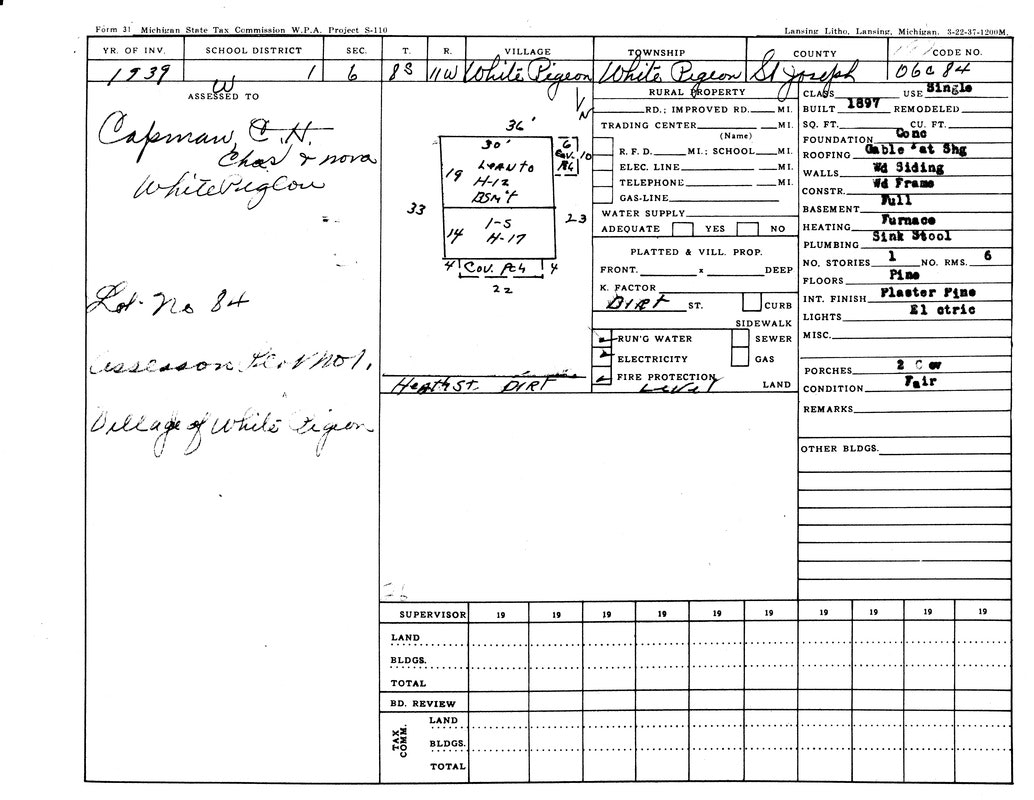 Form 31 Michigan State Tax Commission W.P.A. Project S-110
Lansing Litho, Lansing, Michigan. 3-22-37-1200M.
YR. OF INV. SCHOOL DISTRICT SEC. T. R. VILLAGE TOWNSHIP COUNTY CODE NO.
1939 W 1 6 8S 11W White Pigeon White Pigeon St Joseph 06C 84
ASSESSED TO
Capman, C. H.
Chas & nova
White Pigeon
Lot No 84
Village of White Pigeon
N
36'
30'
19 LEAN TO
H-12
BSM't
6
Cov. 10
Pch
33
23
14 1-5
H-17
4 Cov. Pch 4
22
Heath St. DIRT
RURAL PROPERTY
RD.; IMPROVED RD. MI.
TRADING CENTER MI.
(Name)
R. F. D. MI.; SCHOOL MI.
ELEC. LINE MI.
TELEPHONE MI.
GAS-LINE
WATER SUPPLY
ADEQUATE YES NO
PLATTED & VILL. PROP.
FRONT. x DEEP
K. FACTOR
DIRT ST. CURB
SIDEWALK
RUN'G WATER SEWER
ELECTRICITY GAS
FIRE PROTECTION
Level LAND
CLASS USE Single
BUILT 1897 REMODELED
SQ. FT. CU. FT.
FOUNDATION Conc
ROOFING Gable 'at Shg
WALLS Wd Siding
CONSTR. Wd Frame
BASEMENT Full
HEATING Furnace
PLUMBING Sink Stool
NO. STORIES 1 NO. RMS. 6
FLOORS Pine
INT. FINISH Plaster Pine
LIGHTS El ctric
MISC.
PORCHES 2 C ov
CONDITION Fair
REMARKS
OTHER BLDGS.
SUPERVISOR 19 19 19 19 19 19 19 19 19 19
LAND
BLDGS.
TOTAL
BD. REVIEW
TAX COMM.
LAND
BLDGS.
TOTAL